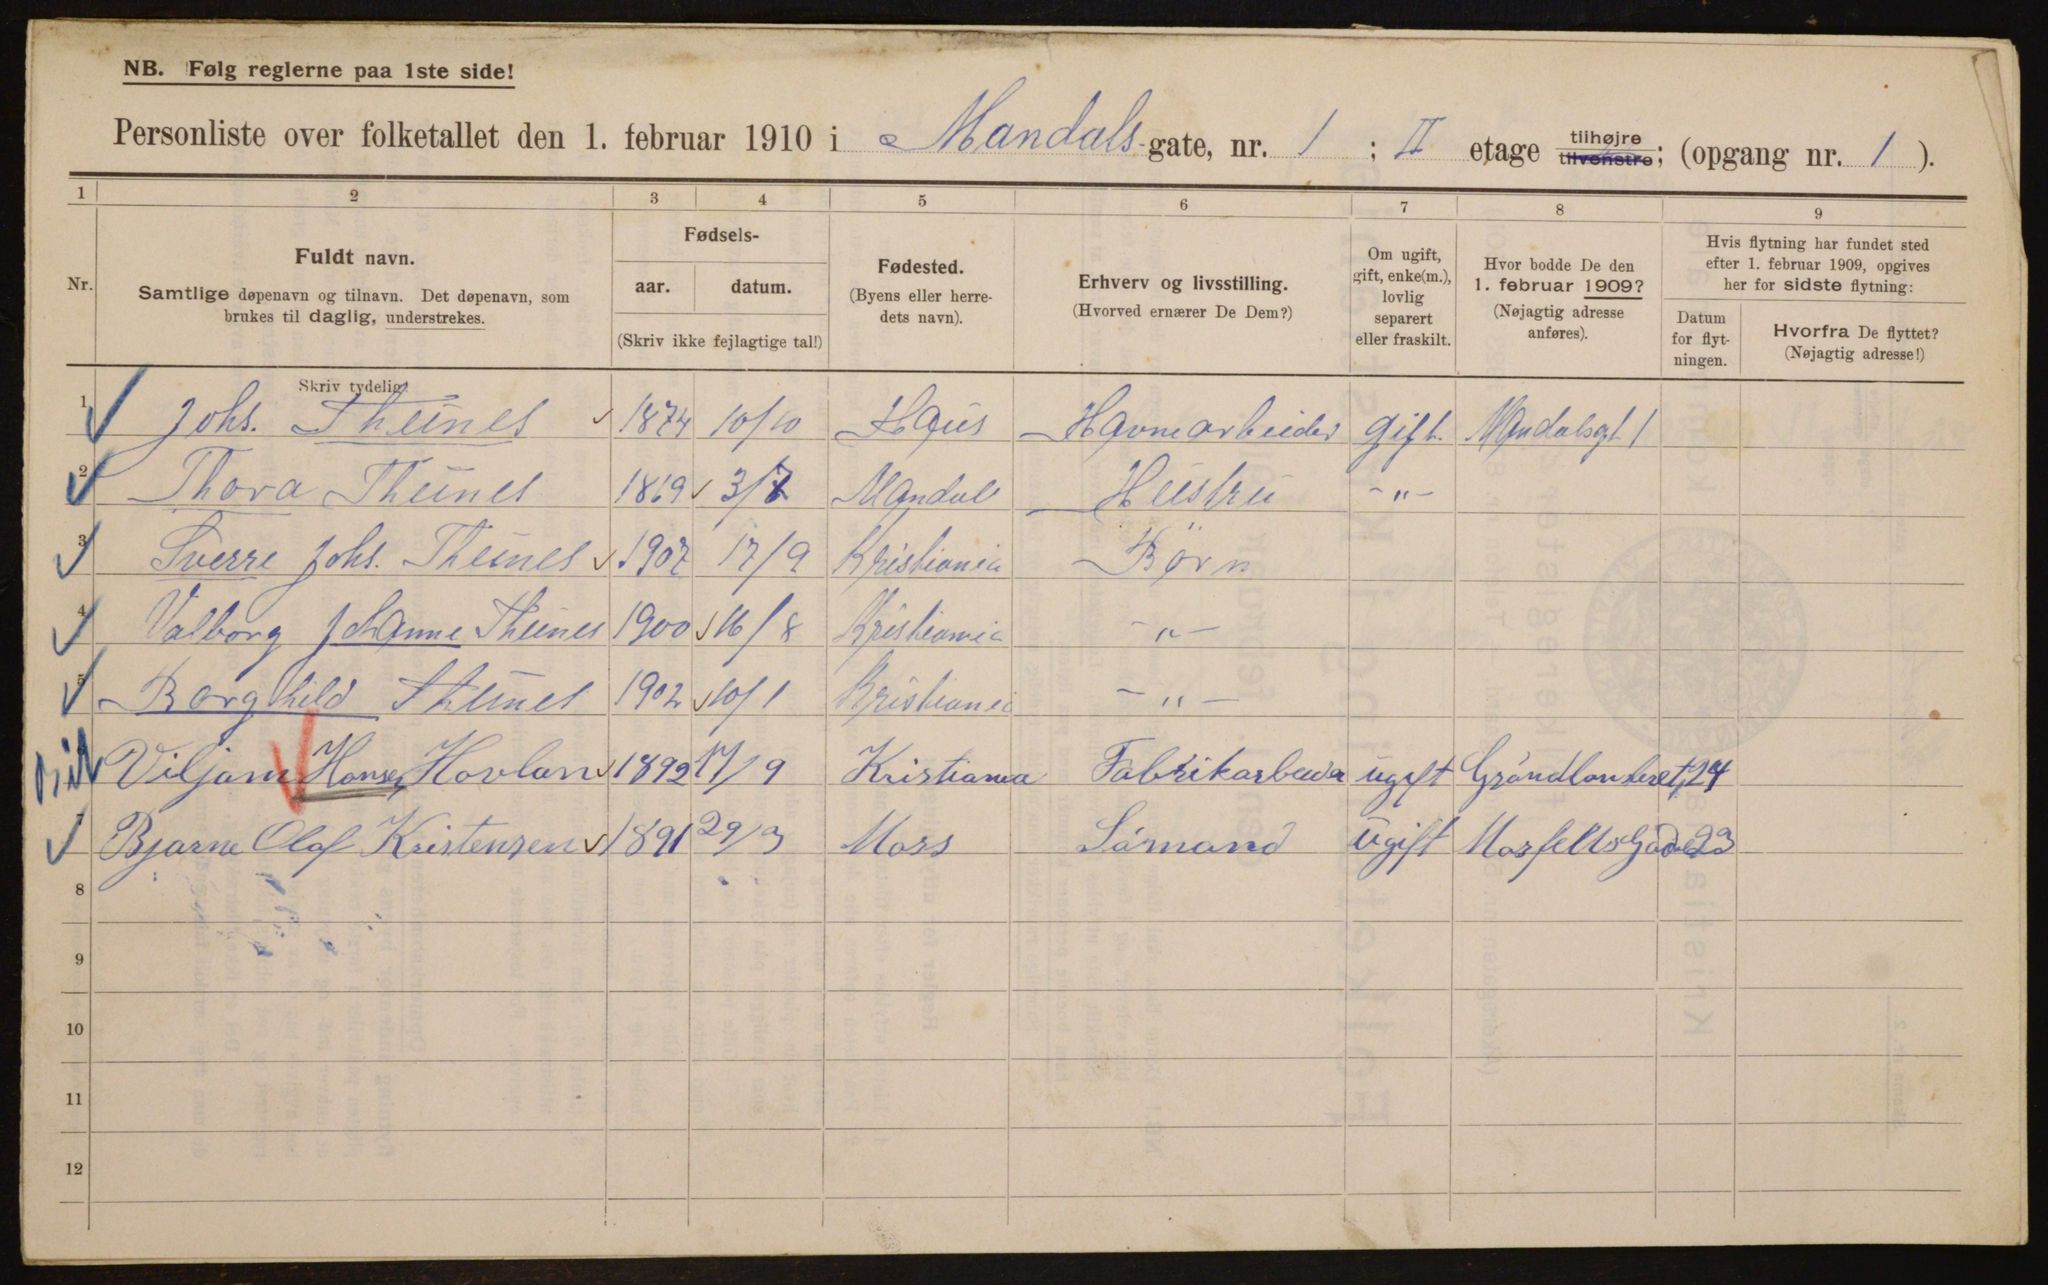 NB. Følg reglerne paa 1ste side!
Personliste over folketallet den 1. februar 1910 i Mandals-gate, nr. 1; II etage tilhøjre tilvenstre; (opgang nr. 1).
1 2 3 4 5 6 7 8 9
Nr.
Fuldt navn.
Samtlige døpenavn og tilnavn. Det døpenavn, som
brukes til daglig, understrekes.
Skriv tydelig!
Fødsels-
aar. datum.
(Skriv ikke fejlagtige tal!)
Fødested.
(Byens eller herre-
dets navn).
Erhverv og livsstilling.
(Hvorved ernærer De Dem?)
Om ugift,
gift, enke(m.),
lovlig
separert
eller fraskilt.
Hvor bodde De den
1. februar 1909?
(Nøjagtig adresse
anføres).
Hvis flytning har fundet sted
efter 1. februar 1909, opgives
her for sidste flytning:
Datum
for flyt-
ningen.
Hvorfra De flyttet?
(Nøjagtig adresse!)
1 Johs. Theunes 1874 10/10 Haus Havnearbeider gift. Mandalsgt 1
2 Thora Theunes 1869 3/7 Mandal Hustru -"-
3 Sverre Johs. Theunes 1907 17/9 Kristiania Børn
4 Valborg Johanne Theunes 1900 16/8 Kristiania -"-
5 Borghild Theunes 1902 10/1 Kristiania -"-
Viljam Hansen Hovlan 1892 17/9 Kristiania Fabrikarbeider ugift Gröndlanderet, 24
7 Bjarne Olaf Kristensen 1891 29/3 Moss Sömand ugift Mosfeltsgade 23
8
9
10
11
12